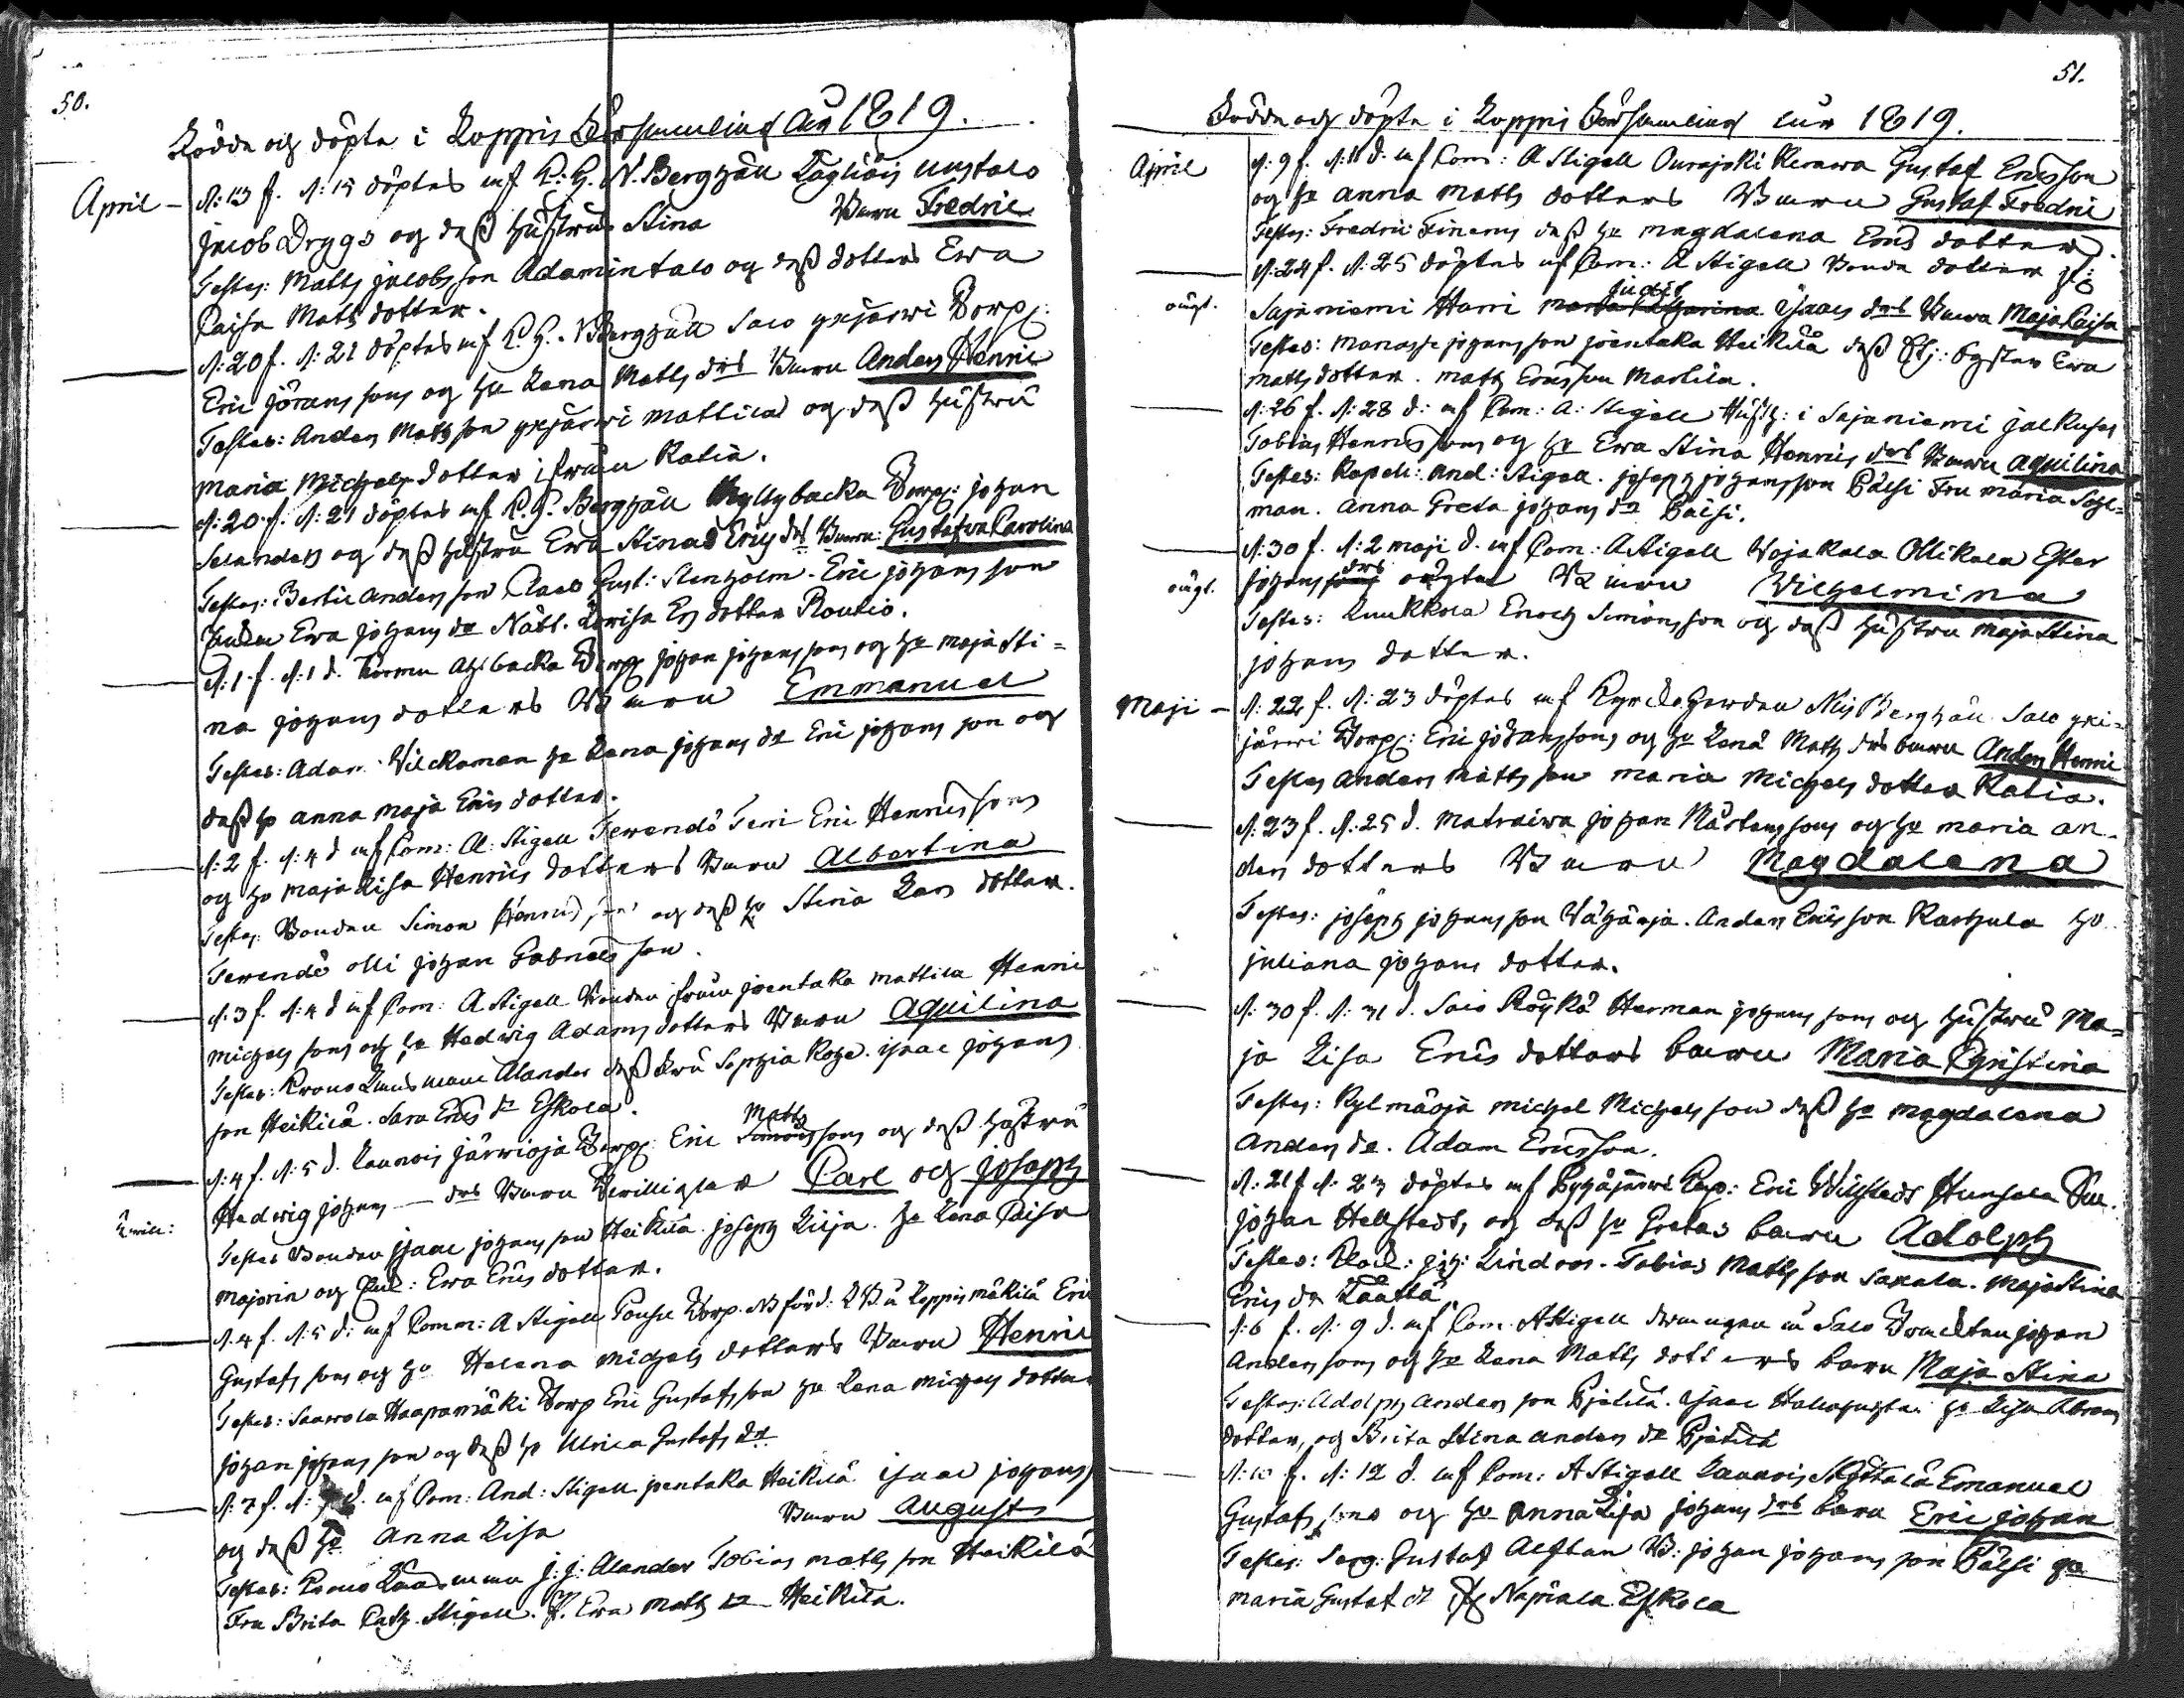 50.
Födde och döpte i Loppis Församling År 1819.
April – d: 13 f. d: 15 döptes af K. H. N. Bergzäll Läyliäis Uustalo
Jacob Dryggs och dess hustrus Stina Barn Fredric
Testes: Matts Jacobsson Adamintalo och dess dotters Ewa
Caisa Mats dotter.
d: 20 f. d: 21 döptes af K. H. N Bergzäll Salo ykjärwi Torp:
Eric Jöransons och ho Lena Matts drs Barn Anders Henric
Testes: Anders Mattsson ykjärwi Mattila och dess hustru
Maria Michels dotter ifrån Ratia.
d: 20 f. d: 21 döptes af K. H. Bergzäll Myllybacka Torp: Johan
Selanders och dess hustru Ewa Stinas Ericsdrs Barn: Gustafva Carolina
Testes: Bertil Andersson Gust: Stenholm. Eric Johansson
Ewa Johans dr Lowisa Ers dotter Routio.
d: 1 f. d: 1 d. Torp Johan Johanssons och ho Maja Sti=
na Johans dotters Barn Emmanuel
Testes: Adam Vilckaman ho Lena Johans dr Eric Johansson och
dess ho Anna Maja Erics dotter.
d: 2 f. d: 4 d af Com: A. Stigell Terwendö Terri Eric Henricssons
och ho Maja Lisa Henrics dotters Barn Albertina
Testes: Bonden Simon Henricsson och dess ho Stina Lars dotter.
Terwendö Olli Johan Gabrielsson.
d: 3 f. d: 4 d af Com: A Stigell Bonden ifrån Joentaka Mattila Henric
Michelssons och ho Hedwig Adams dotters Barn Aquilina
Testes: Krono Länsman Alander dess Fru Sophia Isaac Johans
son Heikilä. Sara Erics dr Eskola.
d: 4 f. d: 5 d. Launois Järwioja Torp: Eric Simons Matts sons och dess hustru
Hedwig Johans – drs Barn Twillingar Carl och Joseph
Twill:
Testes Bonden Isaac Johansson Heikilä Joseph Lilja. ho Lena Caisa
Majorin och Ewa Erics dotter.
d: 4 f. d: 5 d: af Comm: A Stigell Torp. Loppis mäkilä Eric
Gustafssons och ho Helena Michels dotters Barn Henric
Testes: Saarola Haapamäki Torp Eric Gustafsson ho Lena Michels dotter
Johan Johansson och dess ho Ulrica Gustafs dr
d: 7 f. d: d. af Com: And: Stigell Joentaka Heikilä Isaac Johanss
och dess ho Anna Lisa Barn August
Testes: Crono Länsman J. J: Alander Tobias Mattsson Heikilä
Fru Brita Cath. Stigell. Ewa Matts dr Heikilä.
51.
Födde och döpte i Loppis Församling år 1819.
April d: 9 f. d: 11 d: af Com: A Stigell Ourajoki Kerawa Gustaf Ericsson
och ho Anna Matts dotters Barn Gustaf Fredric
Testes: Fredric Finens dess ho Magdalena Erics dotter.
d: 24 f. d: 25 döptes af Com: A Stigell Bonde dotter
oägt. Sajaniemi Harri Maria Catharina Judit Isaacs drs Barn Maja Caisa
Testes: Manasse Johansson Joentaka Heikilä dess Syster Ewa
Matts dotter. Matts Ericsson Marlila.
d: 26 f. d: 28 d: af Com: A: Stigell Husb: i Sajaniemi Jalkuses
Tobias Henricssons och ho Ewa Stina Henrics drs Barn Aquilina
Testes: Kapell: And: Stigell. Joseph Johansson Pälsi Fru Maria Sohl=
man. Anna Greta Johans dr Pälsi.
d: 30 f. d: 2 Maji d. af Com: A Stigell Vojakala Ollikala Ester
oägt. Johans sons drs oägta Barn Vilhelmina
Testes: Luukkola Enoch Simonsson och dess hustru Maja Stina
Johans dotter.
Maji – d: 22 f. d: 23 döptes af Kyrckoherden Nils Bergzäll Salo yki=
järwi Torp: Eric Jöranssons och ho Lena Matts drs barn Anders Henric
Testes Anders Mattsson Maria Michels dotter Ratia.
d: 23 f. d: 25 d. Matraiwa Johan Mårtenssons och ho Maria An-
ders dotters Barn Magdalena
Testes: Joseph Johansson Vähäoja. Anders Ericsson Karhula ho
Juliana Johans dotter.
d: 30 f. d: 31 d. Salo Röykä Herman Johanssons och hustru Ma=
ja Lisa Erics dotters barn Maria Christina
Testes: Kylmäoja Michel Michelsson dess ho Magdalena
Anders dr. Adam Ericsson.
d: 21 f d: 23 döptes af Pyhäjärwi Cap: Eric Wilstedt Hunsala
Johan Hellstedt, och dess ho Gretas barn Adolph
Testes: Joh: Lindroos. Tobias Mattsson Saxala. Maja Stina
Erics dr Läättä.
d: 6 f. d: 9 d. af Com. A Stigell drängen i Salo Johan
Anderssons och ho Lena Matts dotters barn Maja Stina
Testes: Adolph Andersson Pjätilä. Isaac ho Lisa Abrams
dotter, och Brita Stina Anders dr Pjätilä
d: 10 f. d: 12 d. af Com: A Stigell Launois Emanuel
Gustafssons och ho Anna Lisa Johans drs barn Eric Johan
Testes: Serg: Gustaf Alftan B: Johan Johansson Pälsi ho
Maria Gustaf dr Napiala Eskola